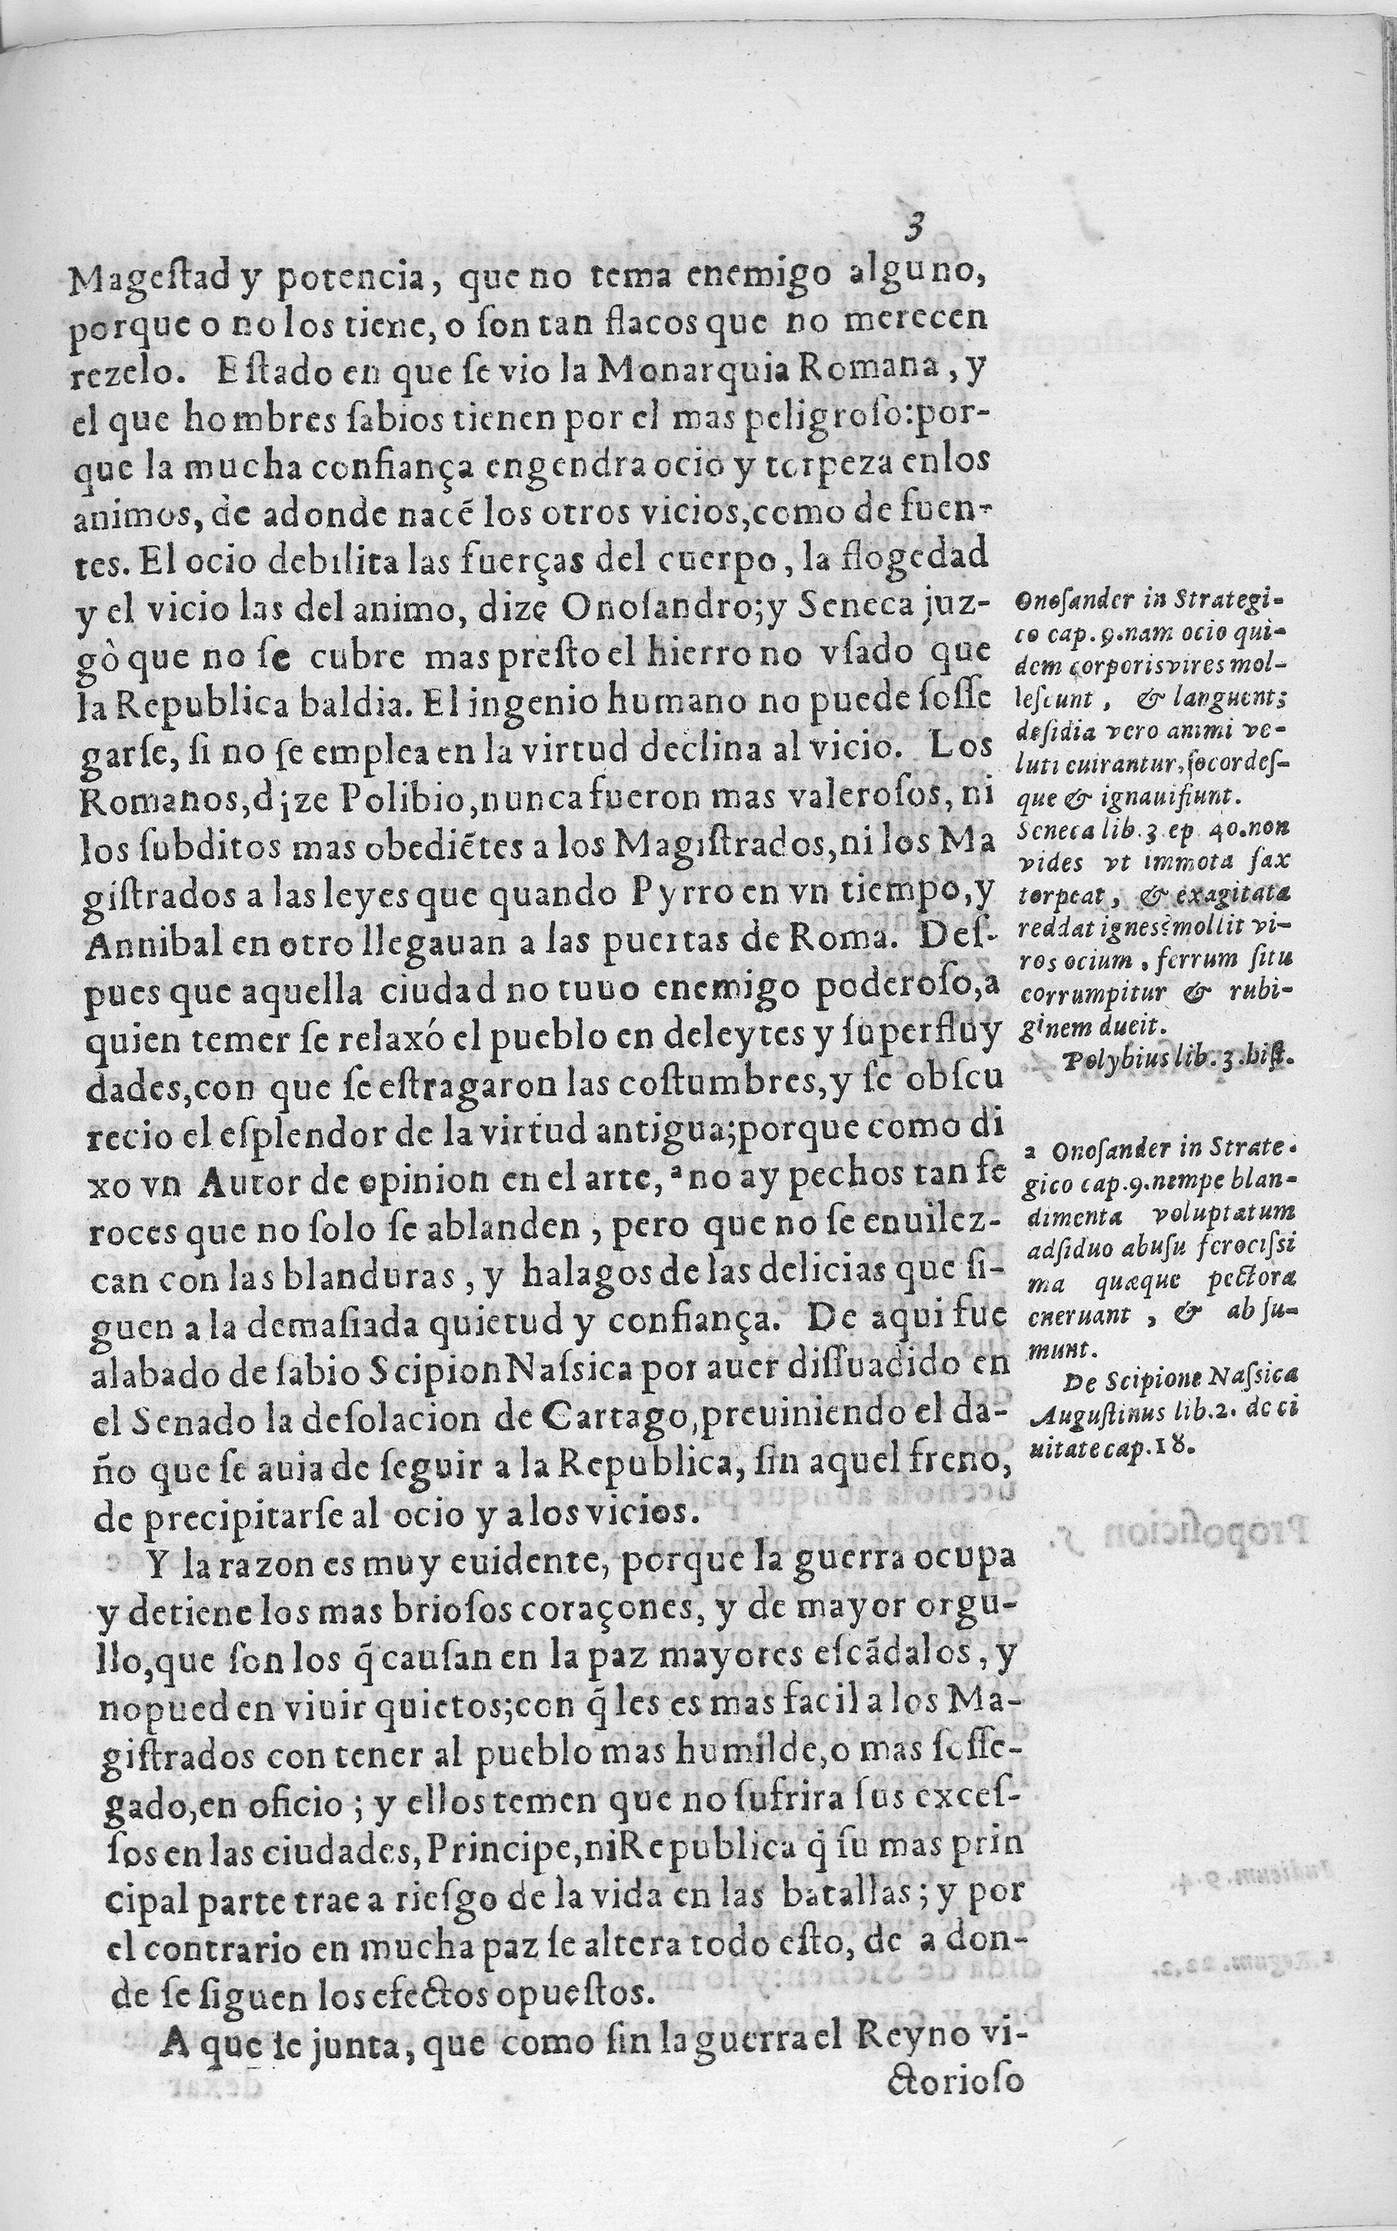 3
Mageſtad y potencia, que no tema enemigo alguno,
porque o no los tiene, o ſon tan flacos que no merecen
rezelo. Eſtado en que ſe vio la Monarquia Romana, y
el que hombres ſabios tienen por el mas peligroſo:por-
que la mucha confiança engendra ocio y torpeza en los
animos, de adonde nacẽ los otros vicios,como de fuen-
tes. El ocio debilita las fuerças del cuerpo, la flogedad
y el vicio las del animo, dize Onoſandro;y Seneca juz-
gò que no ſe cubre mas preſto el hierro no vſado que
la Republica baldia. El ingenio humano no puede ſoſſe
garſe, ſi no ſe emplea en la virtud declina al vicio. Los
Romanos,dize Polibio,nunca fueron mas valeroſos, ni
los ſubditos mas obediẽtes a los Magiſtrados,ni los Ma
giſtrados a las leyes que quando Pyrro en vn tiempo,y
Annibal en otro llegauan a las puertas de Roma. Deſ-
pues que aquella ciudad no tuuo enemigo poderoſo,a
quien temer ſe relaxó el pueblo en deleytes y ſuperfluy
dades,con que ſe eſtragaron las coſtumbres,y ſe obſcu
recio el eſplendor de la virtud antigua;porque como di
xo vn Autor de opinion en el arte, ª no ay pechos tan fe
roces que no ſolo ſe ablanden, pero que no ſe enuilez-
can con las blanduras, y halagos de las delicias que ſi-
guen a la demaſiada quietud y confiança. De aqui fue
alabado de ſabio Scipion Naſsica por auer diſſuadido en
el Senado la deſolacion de Cartago,preuiniendo el da-
ño que ſe auia de ſeguir a la Republica, ſin aquel freno,
de precipitarſe al ocio y a los vicios.
Y la razon es muy euidente, porque la guerra ocupa
y detiene los mas brioſos coraçones, y de mayor orgu-
llo,que ſon los q̃ cauſan en la paz mayores eſcãdalos, y
no pueden viuir quietos;con q̃ les es mas facil a los Ma-
giſtrados contener al pueblo mas humilde,o mas ſoſſe-
gado,en oficio; y ellos temen que no ſufrira ſus exceſ-
ſos en las ciudades, Principe,ni Republica q̃ ſu mas prin
cipal parte trae a rieſgo de la vida en las batallas; y por
el contrario en mucha paz ſe altera todo eſto, de a don-
de ſe ſiguen los efectos opueſtos.
A que ſe junta, que como ſin la guerra el Reyno vi-
ctorioſo
Onoſander in Strategi-
co cap. 9.nam ocio qui-
dem corporis vires mol-
leſcunt, & languent;
deſidia vero animi ve-
luti euirantur,ſocordeſ-
que & ignaui fiunt.
Seneca lib. 3 ep 40.non
vides vt immota fax
torpeat, & exagitata
reddat ignes? mollit vi-
ros ocium, ferrum ſitu
corrumpitur & rubi-
ginem ducit.
Polybius lib. 3. hiſt.
a Onoſander in Strate-
gico cap. 9. nempe blan-
dimenta voluptatum
adſiduo abuſu ferociſsi
ma quæque pectora
eneruant, & abſu-
munt.
De Scipione Naſsica
Auguſtinus lib. 2. de ci
uitate cap. 18.